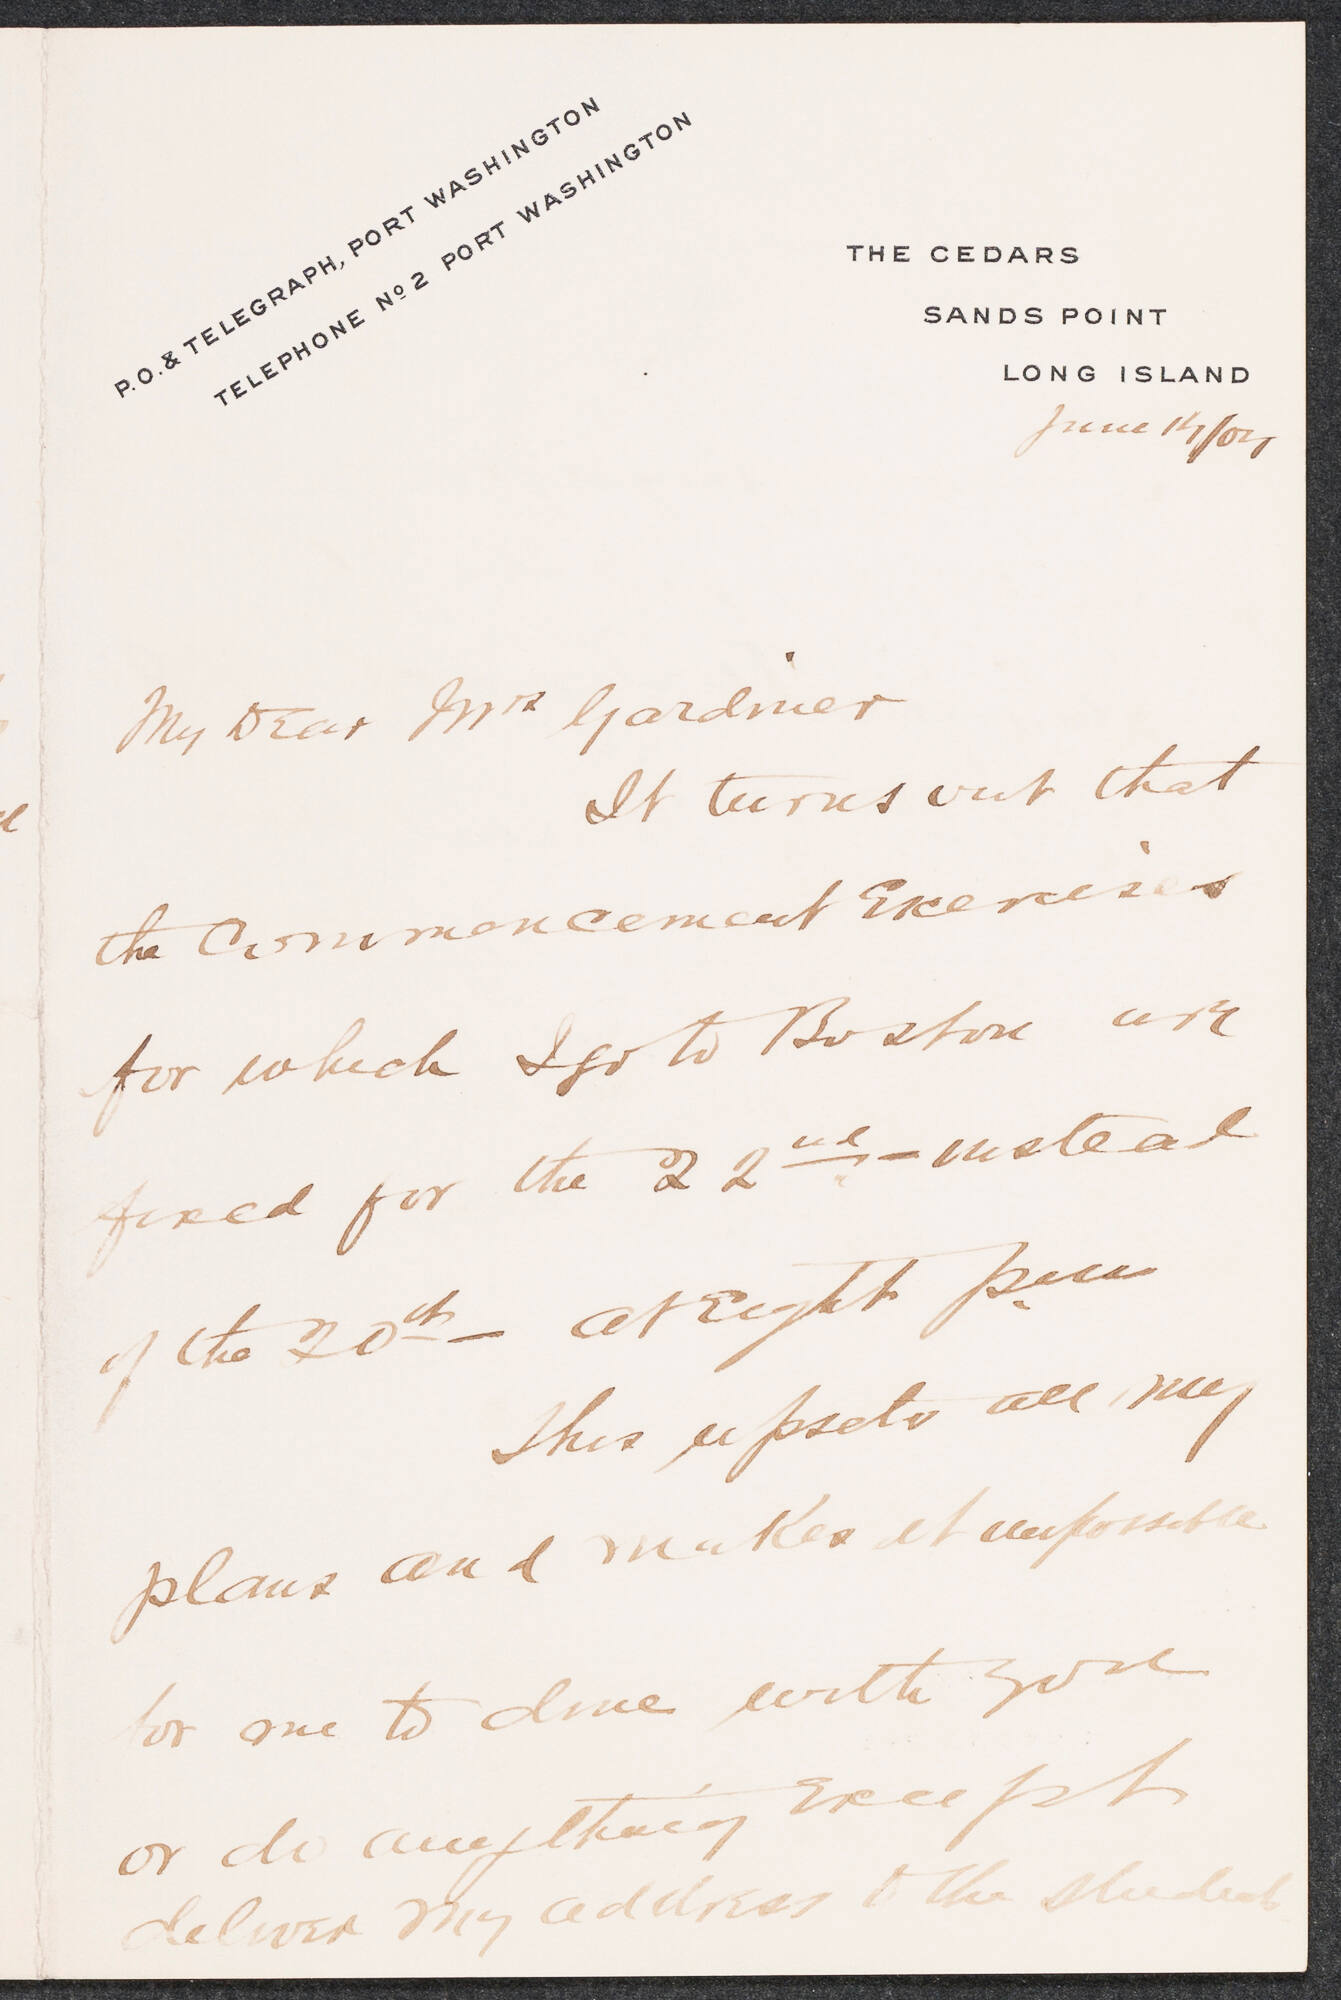 P.O. & TELEGRAPH, PORT WASHINGTON
TELEPHONE Nº 2 PORT WASHINGTON
THE CEDARS
SANDS POINT
LONG ISLAND
June
My Dear Mrs Gardiner
It turns out that
the Commencement Exercises
for which I go to Boston are
fixed for the 22nd - instead
of the 20th - at Eight p.m
This upsets all my
plans and makes it impossible
for me to dine with you
or do anything Except
deliver my address to the students